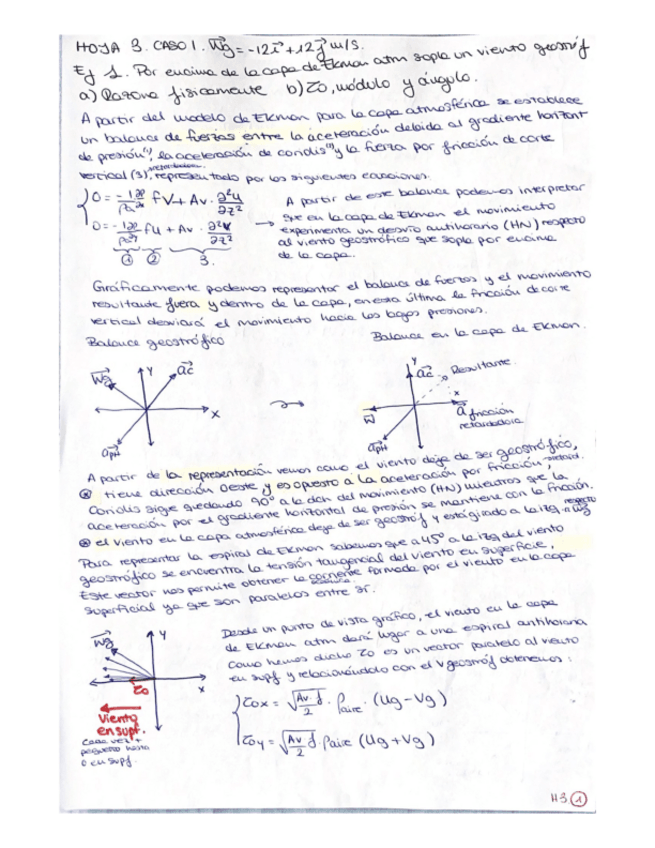 HOJA 3. CASO 1. Wg = -12i + 12j m/s.
Ej 1. Por encima de la capa de Ekman atm sopla un viento geostróf
a) Razona físicamente b) τo, módulo y ángulo.
A partir del modelo de Ekman para la capa atmosférica se establece
un balance de fuerzas entre la aceleración debida al gradiente horizont
de presión(1), la aceleración de coriolis(2) y la fuerza por fricción de corte
vertical (3), representado por las siguientes ecuaciones.
0 = -1∂p/ρ∂x fV + Av · ∂²u/∂z²
0 = -1∂p/ρ∂y - fu + Av · ∂²v/∂z²
① ② 3.
→ A partir de este balance podemos interpretar
que en la capa de Ekman el movimiento
experimenta un desvío antihorario (HN) respecto
al viento geostrófico que sopla por encima
de la capa.
Gráficamente podemos representar el balance de fuerzas y el movimiento
resultante fuera y dentro de la capa, en esta última la fricción de corte
vertical desviará el movimiento hacia las bajas presiones.
Balance geostrófico
Balance en la capa de Ekman.
Wg
Y
ac
X
aPH
Y
ac
Resultante.
x
W
a fricción
retardadora
aPH
A partir de la representación vemos como el viento deja de ser geostrófico,
⊗ tiene dirección oeste y es opuesto a la aceleración por fricción,
Coriolis sigue quedando 90° a la dcha del movimiento (HN) mientras que la
aceleración por el gradiente horizontal de presión se mantiene con la fricción.
⊗ el viento en la capa atmosférica deja de ser geostróf y está girado a la izq respecto a Wg
Para representar la espiral de Ekman sabemos que a 45° a la izq del viento
geostrófico se encuentra la tensión tangencial del viento en superficie,
Este vector nos permite obtener la corriente formada por el viento en la capa
superficial ya que son paralelos entre sí.
Wg
Y
X
τo
Viento
en supf.
Cada vez +
pequeño hasta
0 en supf.
Desde un punto de vista gráfico, el viento en la capa
de Ekman atm dará lugar a una espiral antihoraria
como hemos dicho τo es un vector paralelo al viento
en supf y relacionándolo con el V geostróf obtenemos:
τox = √(Av·f/2) · ρaire · (Ug - Vg)
τoy = √(Av/2 f) · ρaire (Ug + Vg)
H3 ①